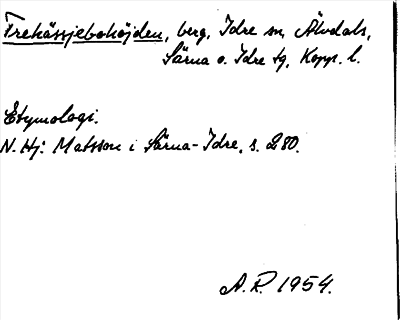 Trekässjebohöjden, berg, Idre sn, Älvdals,
Särna o. Idre tg, Kopp. l.
Etymologi.
N. Hj. Matsson i Särna-Idre, s. 280.
A.R. 1954.